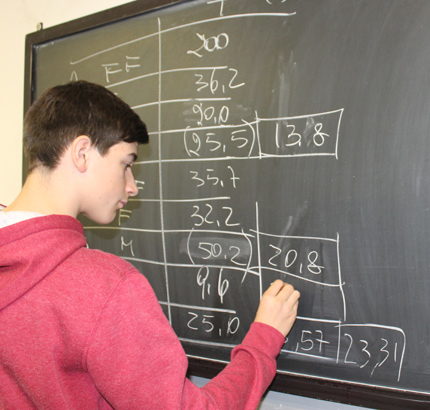 FF 200
36,2
20,0
(25,5) 13,8
F 35,7
F 32,2
M (50,2) 20,8
9,6
25,0 ,57 23,31